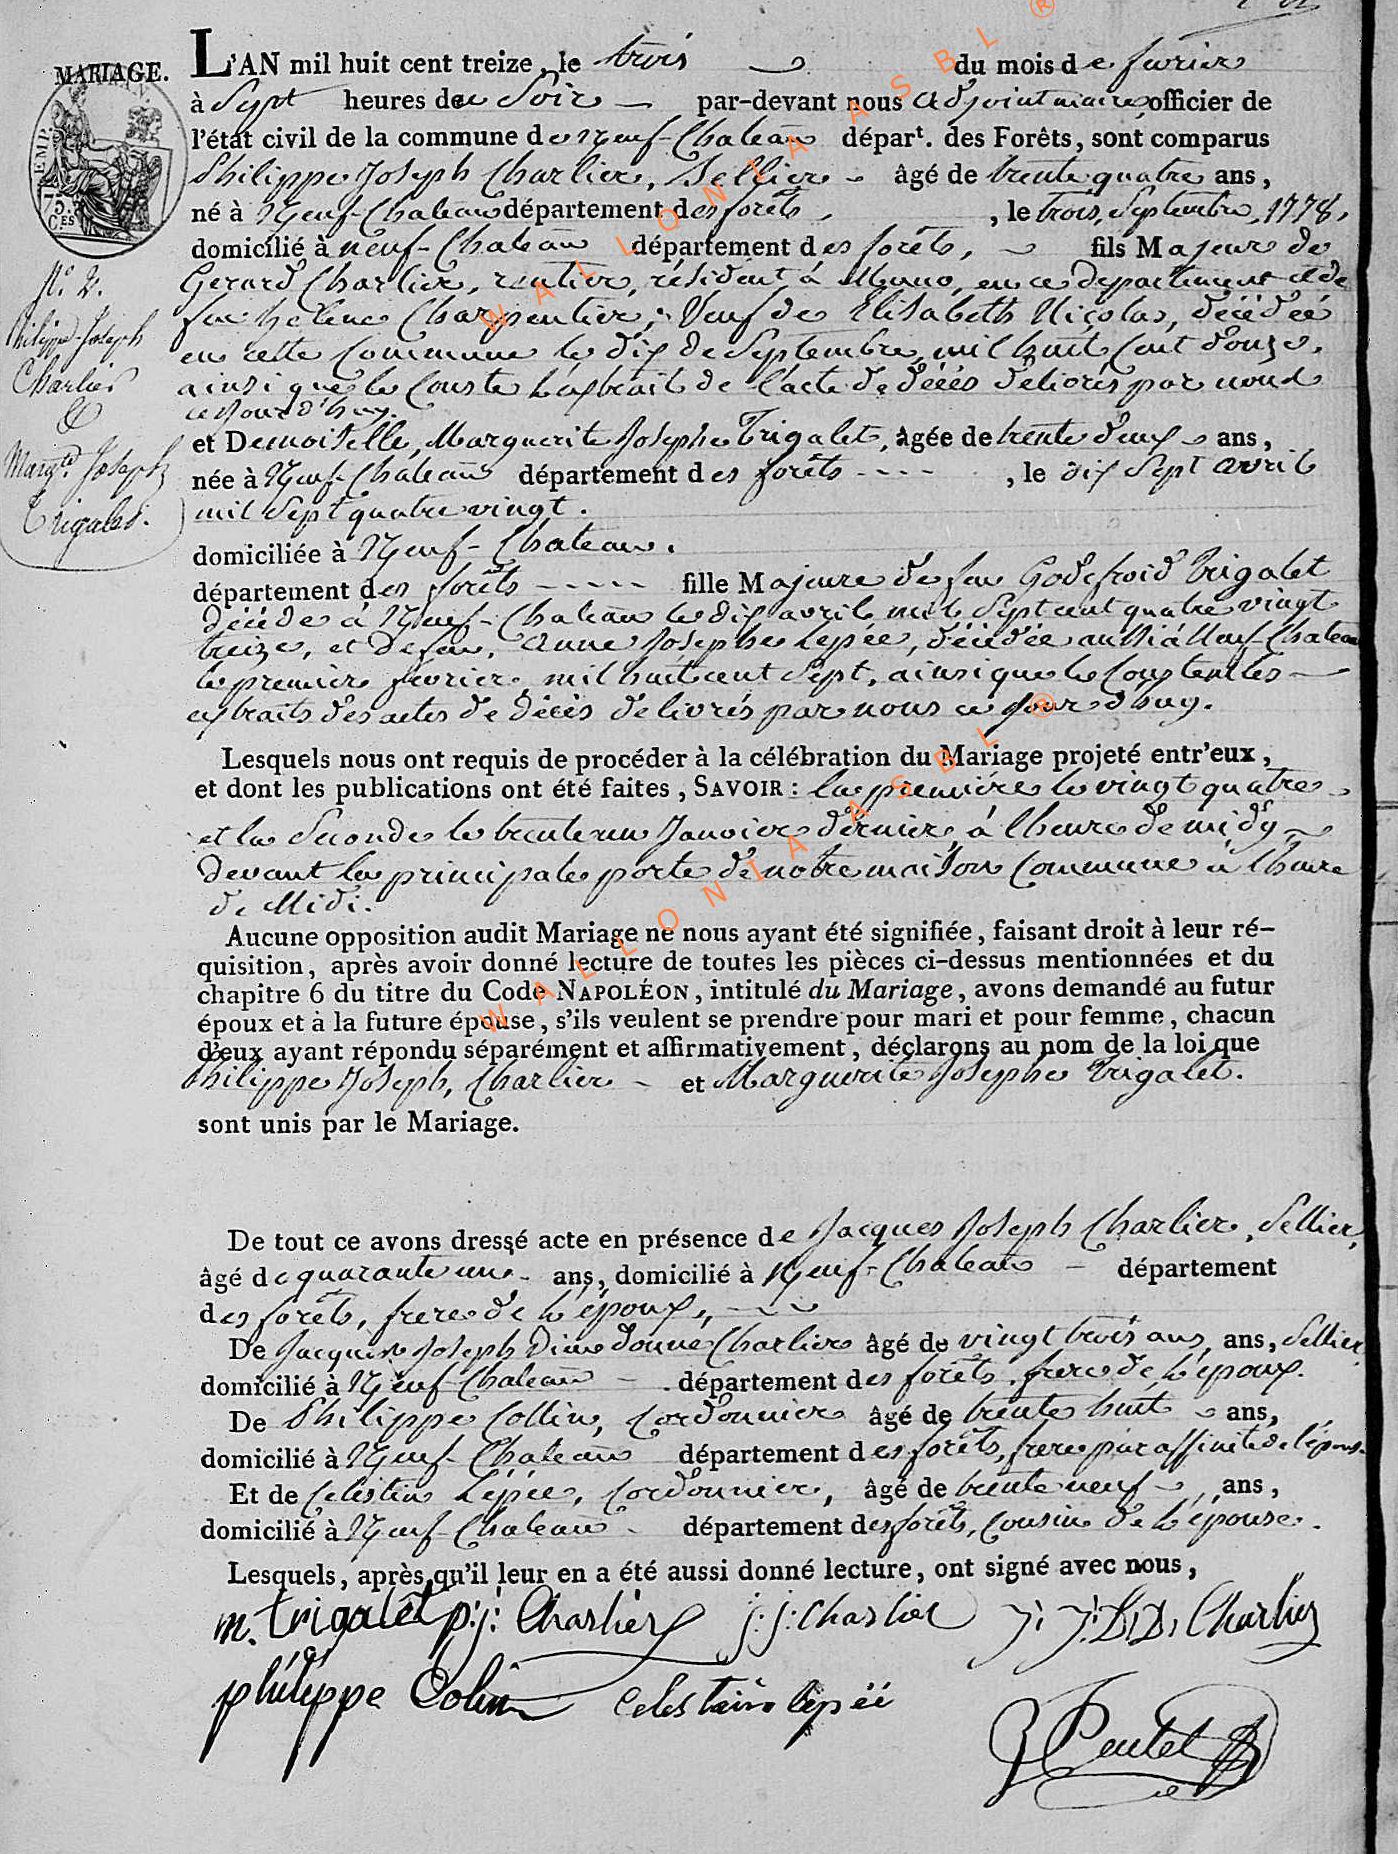 MARIAGE.
L'AN mil huit cent treize, le trois du mois de fevrier
à Sept heures du Soir par-devant nous adjoint maire officier de
l'état civil de la commune de Neuf-Chateau départ. des Forêts, sont comparus
Philippe Joseph Charlier, Sellier âgé de trente quatre ans,
né à Neuf-Chateau département des forêts, le trois Septembre 1778,
domicilié à neuf-Chateau département des forêts, fils Majeur de
Gerard Charlier, rentier, résident à Muno, en ce departement et de
feue helene Charpentier, Veuf de Elisabeth Nicolas, décédée
en cette Commune le dix de Septembre mil huit Cent douze,
ainsi que le Conste l'extrait de l'acte de décés délivrés par nous
ce jour d'huy.
N° 2.
Philippe-Joseph
Charlier
&
Marg.te Joseph
Trigalet.
et Demoiselle, Marguerite Josephe Trigalet, âgée de trente deux ans,
née à Neuf-Chateau département des forêts - - - - , le dix Sept avril
mil Sept quatre vingt.
domiciliée à Neuf-Chateau.
département des forêts - - - - fille Majeure de feu Godefroid Trigalet
décédé à Neuf-Chateau le dix avril mil Sept cent quatre vingt
treize, et de feu, Anne Josephe Lepée, décédée aussi à Neuf-Chateau
le premier fevrier, mil huit cent Sept, ainsi que le Constent les
extraits des actes de décès délivrés par nous ce jour d'huy.
Lesquels nous ont requis de procéder à la célébration du Mariage projeté entr'eux,
et dont les publications ont été faites, SAVOIR : la premiére le vingt quatre
et la Seconde le trente un Janvier dernier à l'heure de midy
devant la principale porte de notre maison Commune à l'heure
de Midi.
Aucune opposition audit Mariage ne nous ayant été signifiée, faisant droit à leur ré-
quisition, après avoir donné lecture de toutes les pièces ci-dessus mentionnées et du
chapitre 6 du titre du Code NAPOLÉON, intitulé du Mariage, avons demandé au futur
époux et à la future épouse, s'ils veulent se prendre pour mari et pour femme, chacun
d'eux ayant répondu séparément et affirmativement, déclarons au nom de la loi que
Philippe Joseph, Charlier et Marguerite Josephe Trigalet.
sont unis par le Mariage.
De tout ce avons dressé acte en présence de Jacques Joseph Charlier, Sellier,
âgé de quarante un ans, domicilié à Neuf-Chateau département
des forêts, frere de l'époux,
De Jacques Joseph Dieudonné Charlier âgé de vingt trois ans, ans, Sellier
domicilié à Neuf-Chateau département des forêts, frere de l'époux.
De Philippe Collin, Cordonnier âgé de trente huit ans,
domicilié à Neuf-Chateau département des forêts, frere par affinité de l'épouse
Et de Celestin Lépée, Cordonnier, âgé de trente neuf ans,
domicilié à Neuf-Chateau département des forêts, Cousin de l'épouse.
Lesquels, après qu'il leur en a été aussi donné lecture, ont signé avec nous,
m. trigalet p: j: Charlier j: j: Charlier J: J: D: D: Charlier
philippe Colin Celestain lepéé
WALLONIA ASBL ®
WALLONIA ASBL ®